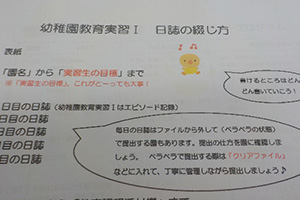 幼稚園教育実習Ⅰ 日誌の綴じ方
表紙
「園名」から「実習生の目標」まで
※「実習生の目標」これがと〜っても大事!
書けるところはどん
どん書いていこう!
日目の日誌(幼稚園教育実習Ⅰはエピソード記録)
日目の日誌
日目の日誌
日目の日誌
日目の日誌
毎日の日誌はファイルから外して(ペラペラの状態)
で提出する園もあります。提出の仕方を園に確認しま
しょう。 ペラペラで提出する際は「クリアファイル」
などに入れて、丁寧に管理しながら提出しましょう♪